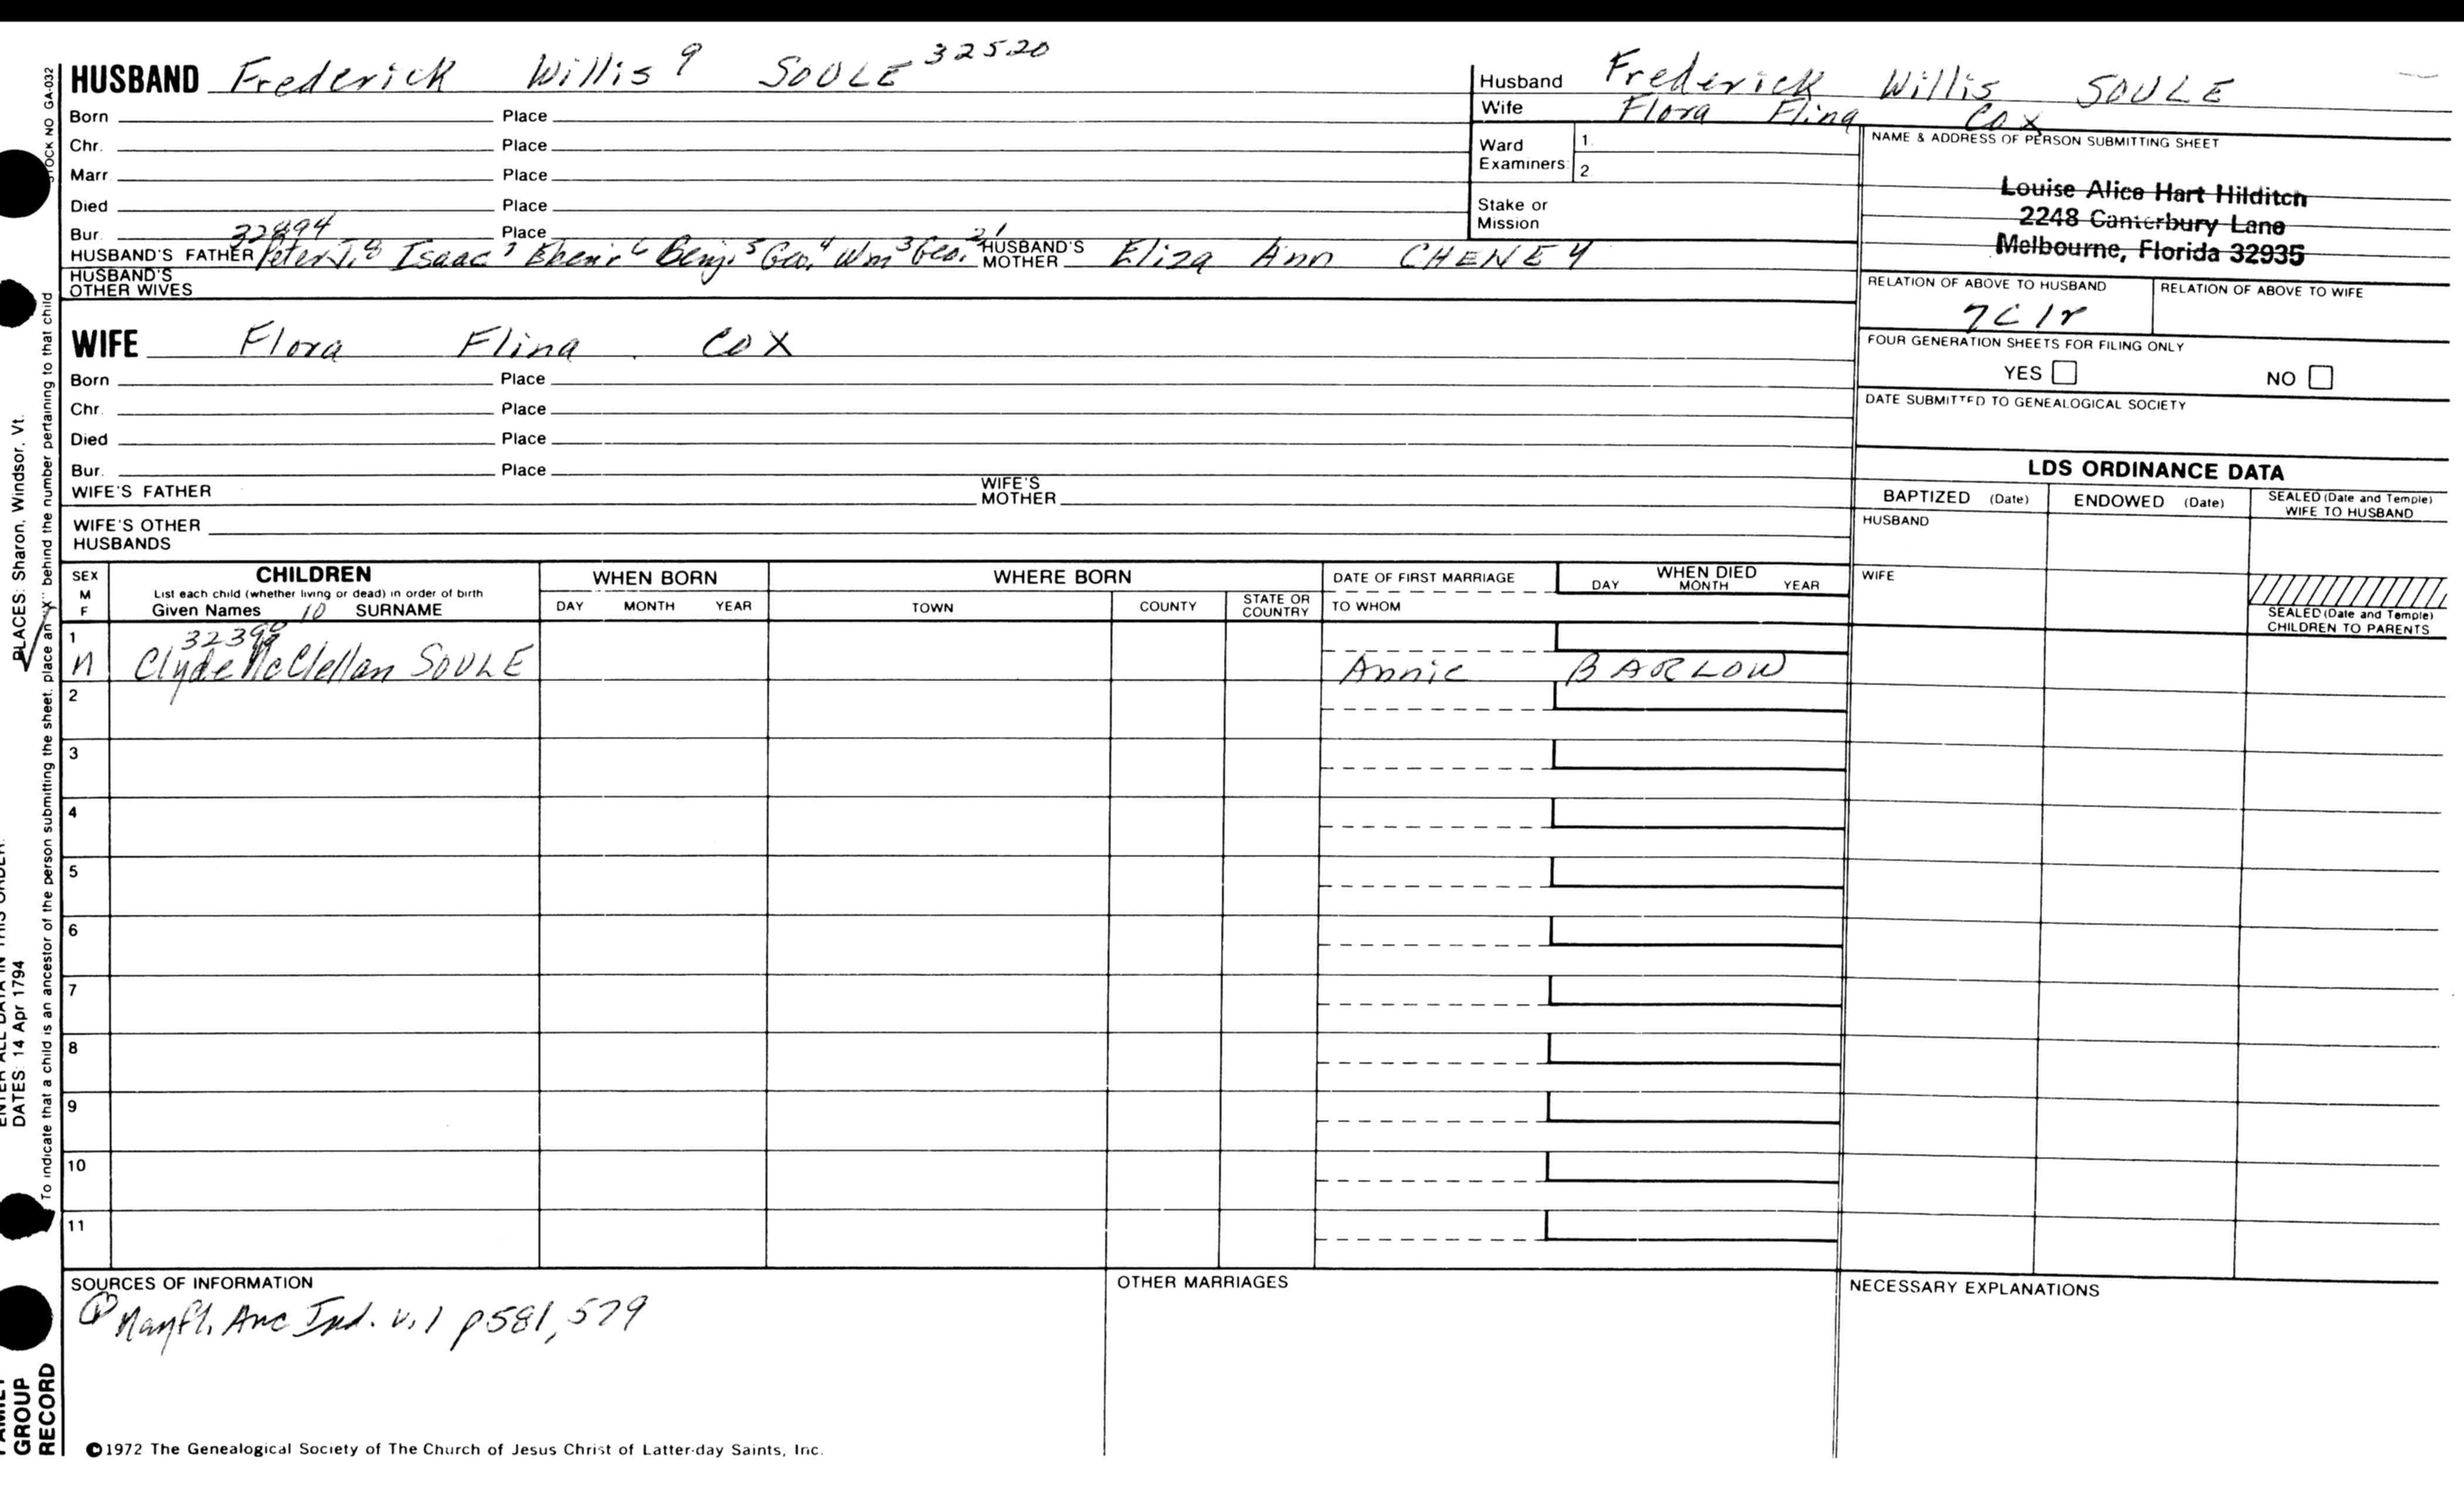 HUSBAND Frederick Willis 9 SOULE 32520
Born Place
Chr. Place
Marr Place
Died Place
Bur. Place
32894
HUSBAND'S FATHER Peter J.8 Isaac7 Ebenr6 Benj.5 Geo.4 Wm3 Geo.21 HUSBAND'S MOTHER Eliza Ann CHENEY
HUSBAND'S OTHER WIVES
WIFE Flora Flina COX
Born Place
Chr. Place
Died Place
Bur. Place
WIFE'S FATHER WIFE'S MOTHER
WIFE'S OTHER HUSBANDS
Husband Frederick Willis SOULE
Wife Flora Flina Cox
Ward Examiners: 1. 2
Stake or Mission
NAME & ADDRESS OF PERSON SUBMITTING SHEET
Louise Alice Hart Hilditch
2248 Canterbury Lane
Melbourne, Florida 32935
RELATION OF ABOVE TO HUSBAND RELATION OF ABOVE TO WIFE
7C 1r
FOUR GENERATION SHEETS FOR FILING ONLY
YES NO
DATE SUBMITTED TO GENEALOGICAL SOCIETY
LDS ORDINANCE DATA
BAPTIZED (Date) ENDOWED (Date) SEALED (Date and Temple) WIFE TO HUSBAND
HUSBAND
WIFE
SEALED (Date and Temple) CHILDREN TO PARENTS
SEX M F CHILDREN WHEN BORN WHERE BORN DATE OF FIRST MARRIAGE WHEN DIED
List each child (whether living or dead) in order of birth
Given Names 10 SURNAME DAY MONTH YEAR TOWN COUNTY STATE OR COUNTRY TO WHOM DAY MONTH YEAR
1
M Clyde McClellan SOULE Annie BARLOW
2
3
4
5
6
7
8
9
10
11
SOURCES OF INFORMATION OTHER MARRIAGES NECESSARY EXPLANATIONS
Mayfl. Anc Ind. v.1 p581, 579
©1972 The Genealogical Society of The Church of Jesus Christ of Latter-day Saints, Inc.
STOCK NO GA-032
To indicate that a child is an ancestor of the person submitting the sheet, place an "X" behind the number pertaining to that child
PLACES: Sharon, Windsor, Vt.
DATES: 14 Apr 1794
GROUP
RECORD